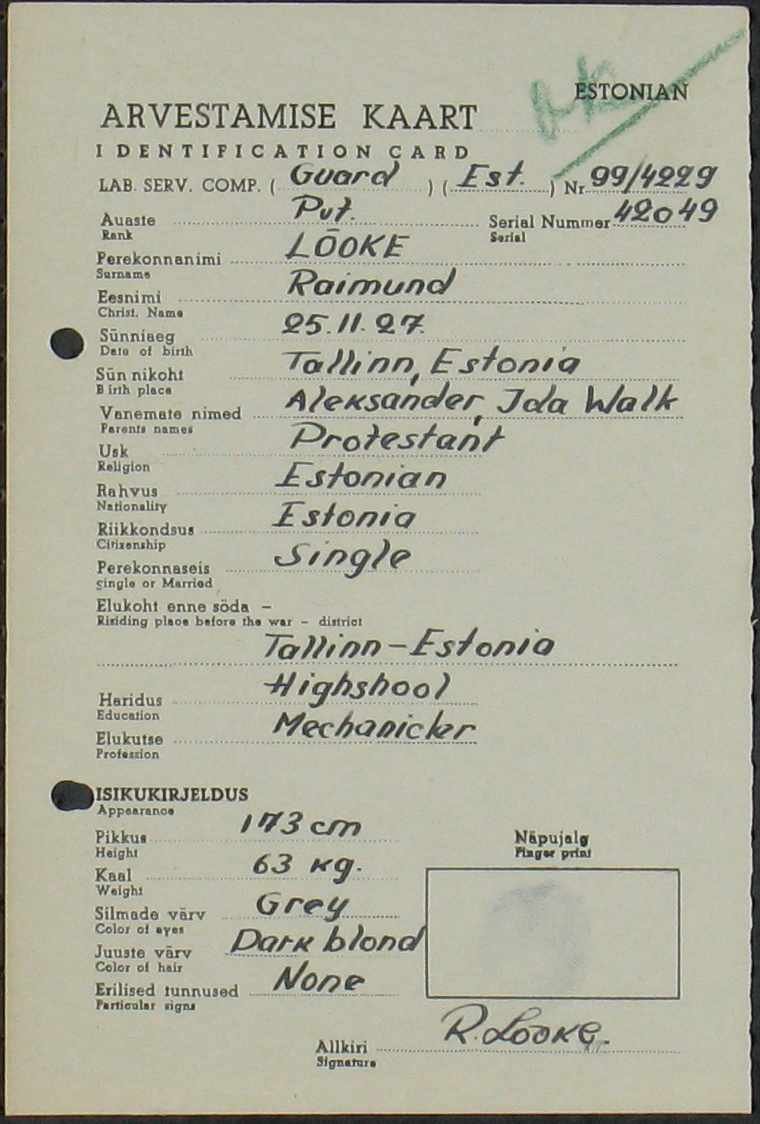 ok
ESTONIAN
ARVESTAMISE KAART
IDENTIFICATION CARD
LAB. SERV. COMP. ( Guard ) ( Est. ) Nr 99/4229
Auaste Pvt. Serial Nummer 42049
Rank Serial
Perekonnanimi LÕOKE
Surname
Eesnimi Raimund
Christ. Name
Sünniaeg 25.11.27.
Date of birth
Sünnikoht Tallinn, Estonia
Birth place
Vanemate nimed Aleksander, Ida Walk
Parents names
Usk Protestant
Religion
Rahvus Estonian
Nationality
Riikkondsus Estonia
Citizenship
Perekonnaseis Single
Single or Married
Elukoht enne söda –
Risiding place before the war – district
Tallinn – Estonia
Haridus Highshool
Education
Elukutse Mechanicker
Profession
ISIKUKIRJELDUS
Appearance
Pikkus 173 cm
Height
Kaal 63 kg.
Weight
Silmade värv Grey
Color of eyes
Juuste värv Dark blond
Color of hair
Erilised tunnused None
Particular signs
Näpujalg
Finger print
Allkiri R. Looke.
Signature